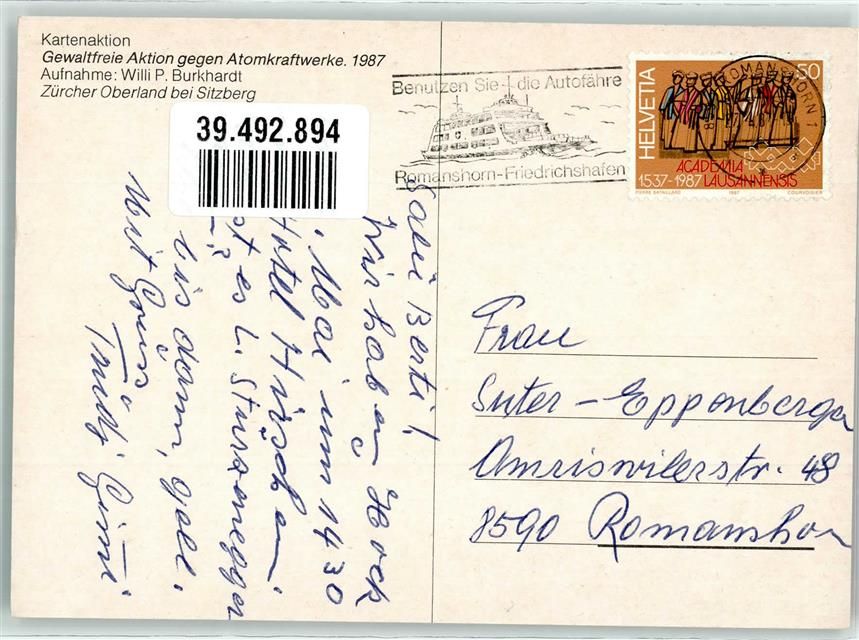 Kartenaktion
Gewaltfreie Aktion gegen Atomkraftwerke. 1987
Aufnahme: Willi P. Burkhardt
Zürcher Oberland bei Sitzberg
39.492.894
Benutzen Sie die Autofähre
Romanshorn-Friedrichshafen
ROMANSHORN 1
HELVETIA
50
ACADEMIA
1537-1987 LAUSANNENSIS
PIERRE BATAILLARD 1987 COURVOISIER
Salü Berti!
Wir haben Hock
. Mai um 14 30
Hotel Hirschen
st es L. Sturzenegger
?
bis dann, gell.
Mit Gruss
Trudi
Frau
Suter-Eppenberger
Amriswilerstr. 48
8590 Romanshorn